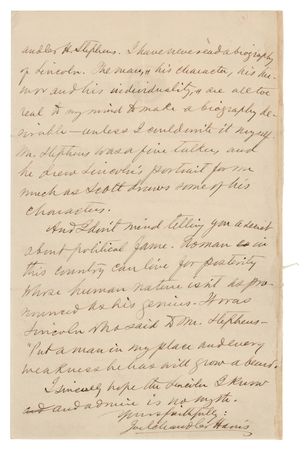 ander H. Stephens. I have never read a biography
of Lincoln. The man, his character, his hu-
mor and his individuality, are all too
real to my mind to make a biography de-
sirable—unless I could write it myself.
Mr. Stephens was a fine talker, and
he drew Lincoln's portrait for me
much as Scott draws some of his
characters.
And I don't mind telling you a secret
about political fame. No man in
this country can live for posterity
whose human nature isn't as pro-
nounced as his genius. It was
Lincoln who said to Mr. Stephens—
"Put a man in my place and every
weakness he has will grow a beard."
I sincerely hope the Lincoln I know
and and admire is no myth.
Yours faithfully:
Joel Chandler Harris